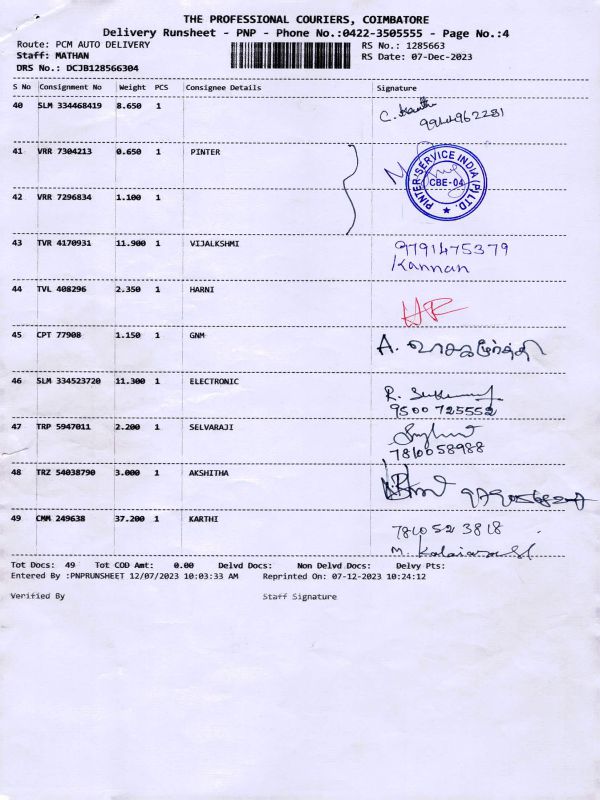 THE PROFESSIONAL COURIERS, COIMBATORE
Delivery Runsheet - PNP - Phone No.:0422-3505555 - Page No.:4
Route: PCM AUTO DELIVERY RS No.: 1285663
Staff: MATHAN RS Date: 07-Dec-2023
DRS No.: DCJB128566304
S No Consignment No Weight PCS Consignee Details Signature
40 SLM 334468419 8.650 1
C.
9944962281
41 VRR 7304213 0.650 1 PINTER
PINTER SERVICE INDIA (P) LTD.
CBE-04
42 VRR 7296834 1.100 1
43 TVR 4170931 11.900 1 VIJALKSHMI 9791475379
Kannan
44 TVL 408296 2.350 1 HARNI
45 CPT 77908 1.150 1 GNM
A.
46 SLM 334523720 11.300 1 ELECTRONIC
R.
9500725552
47 TRP 5947011 2.200 1 SELVARAJI
7810058988
48 TRZ 54038790 3.000 1 AKSHITHA
49 CMM 249638 37.200 1 KARTHI
7810523818
M.
Tot Docs: 49 Tot COD Amt: 0.00 Delvd Docs: Non Delvd Docs: Delvy Pts:
Entered By :PNPRUNSHEET 12/07/2023 10:03:33 AM Reprinted On: 07-12-2023 10:24:12
Verified By Staff Signature